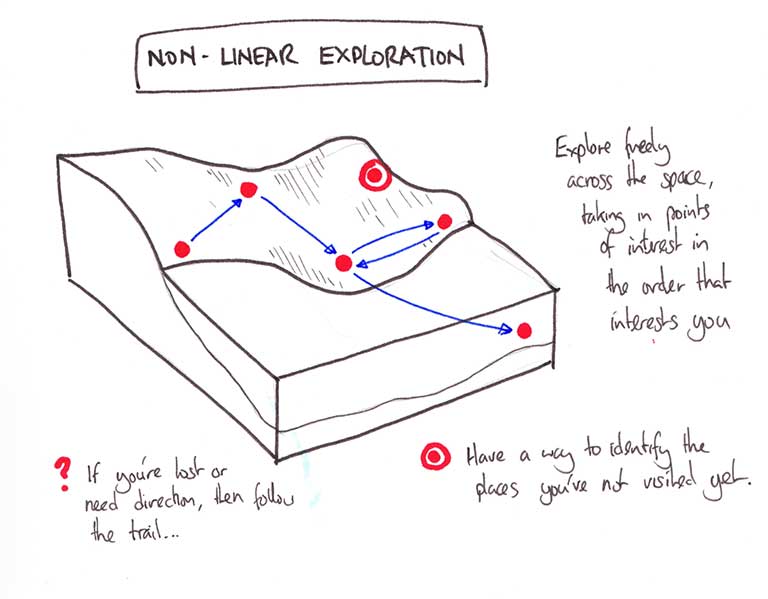 NON-LINEAR EXPLORATION
Explore freely
across the space,
taking in points
of interest in
the order that
interests you
? If you're lost or
need direction, then follow
the trail...
Have a way to identify the
places you've not visited yet.